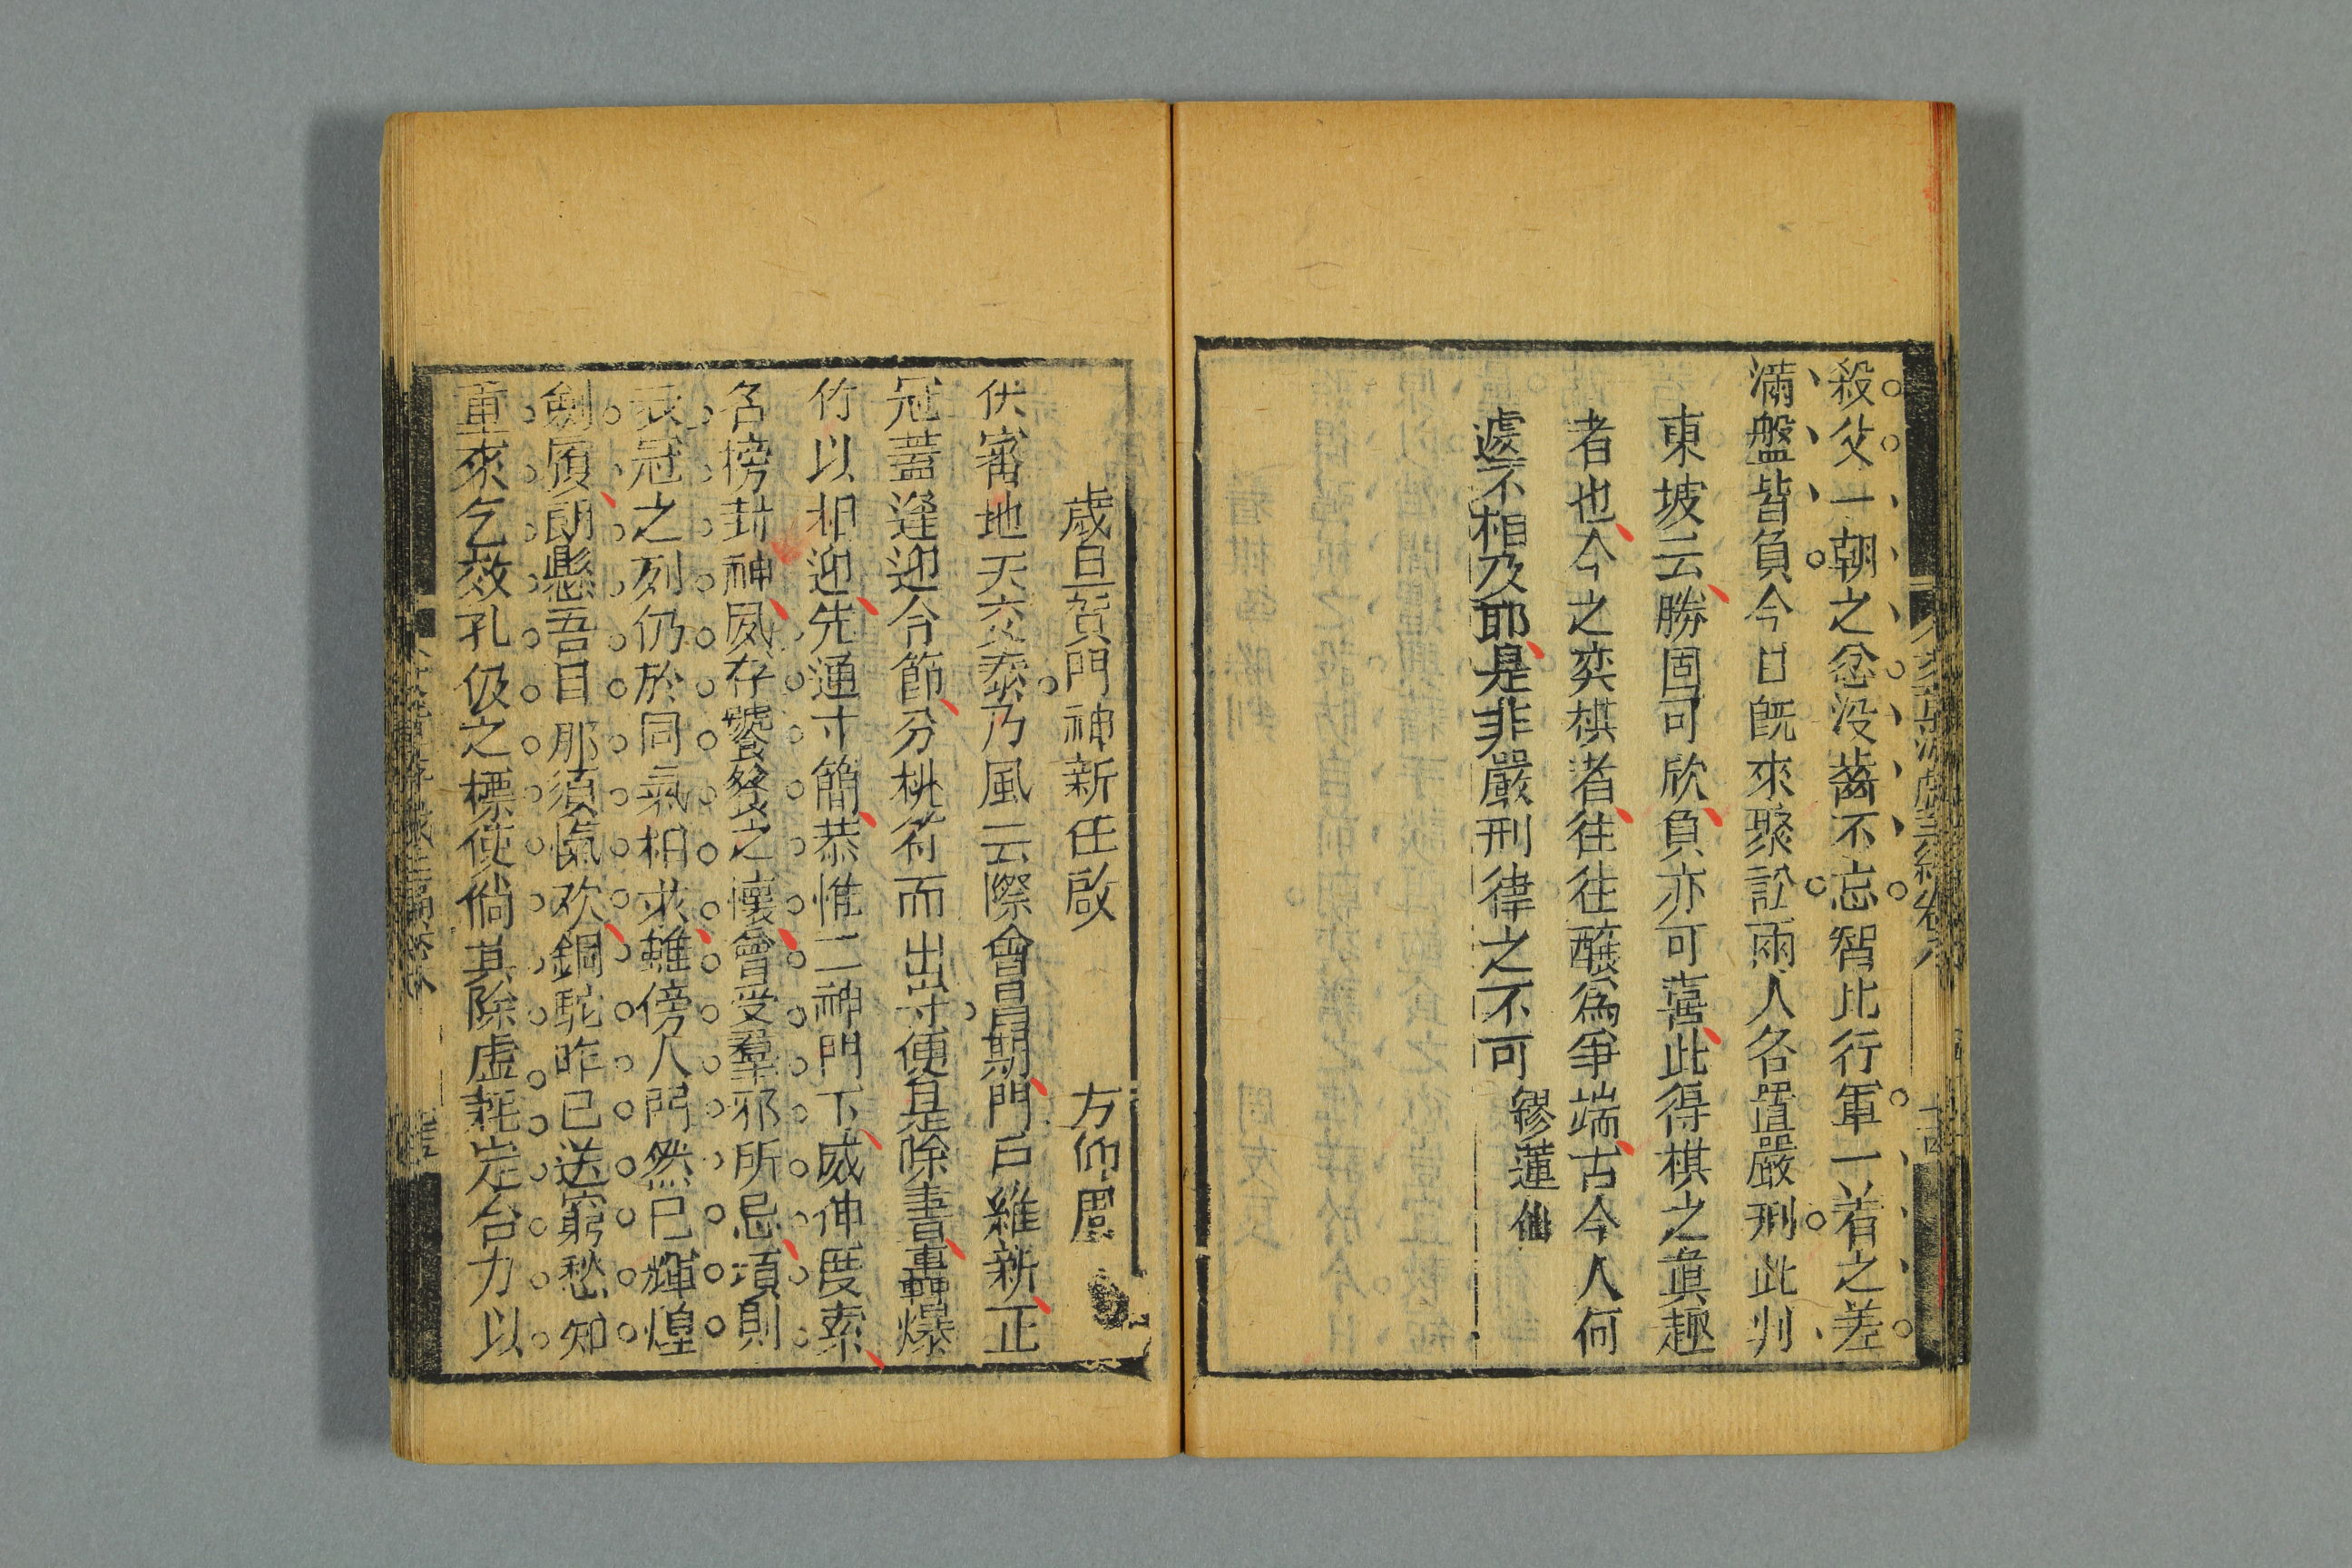 殺父一朝之忿没齒不忘智比行軍一着之差
滿盤皆負今日旣來聚訟兩人各置嚴刑此判
東坡云勝固可欣負亦可喜此得棋之眞趣
者也今之奕棋者往往釀為爭端古今人何
遽不相及耶是非嚴刑律之不可
繆蓮仙
歲旦賀門神新任啟
方仰眉
伏審地天交泰乃風云際會昌期門戶維新正
冠蓋逢迎令節分桃符而出守便是除書轟爆
竹以相迎先通寸簡恭惟二神門下威伸度索
名榜封神夙存饕餮之懷曾受羣邪所忌頃則
衣冠之列仍於同氣相求雖傍人門然已輝煌
劍履朗懸吾目那須慪氣欢銅駝昨已送窮愁知
重來乞效孔伋之標使倘其除虛耗定台力以